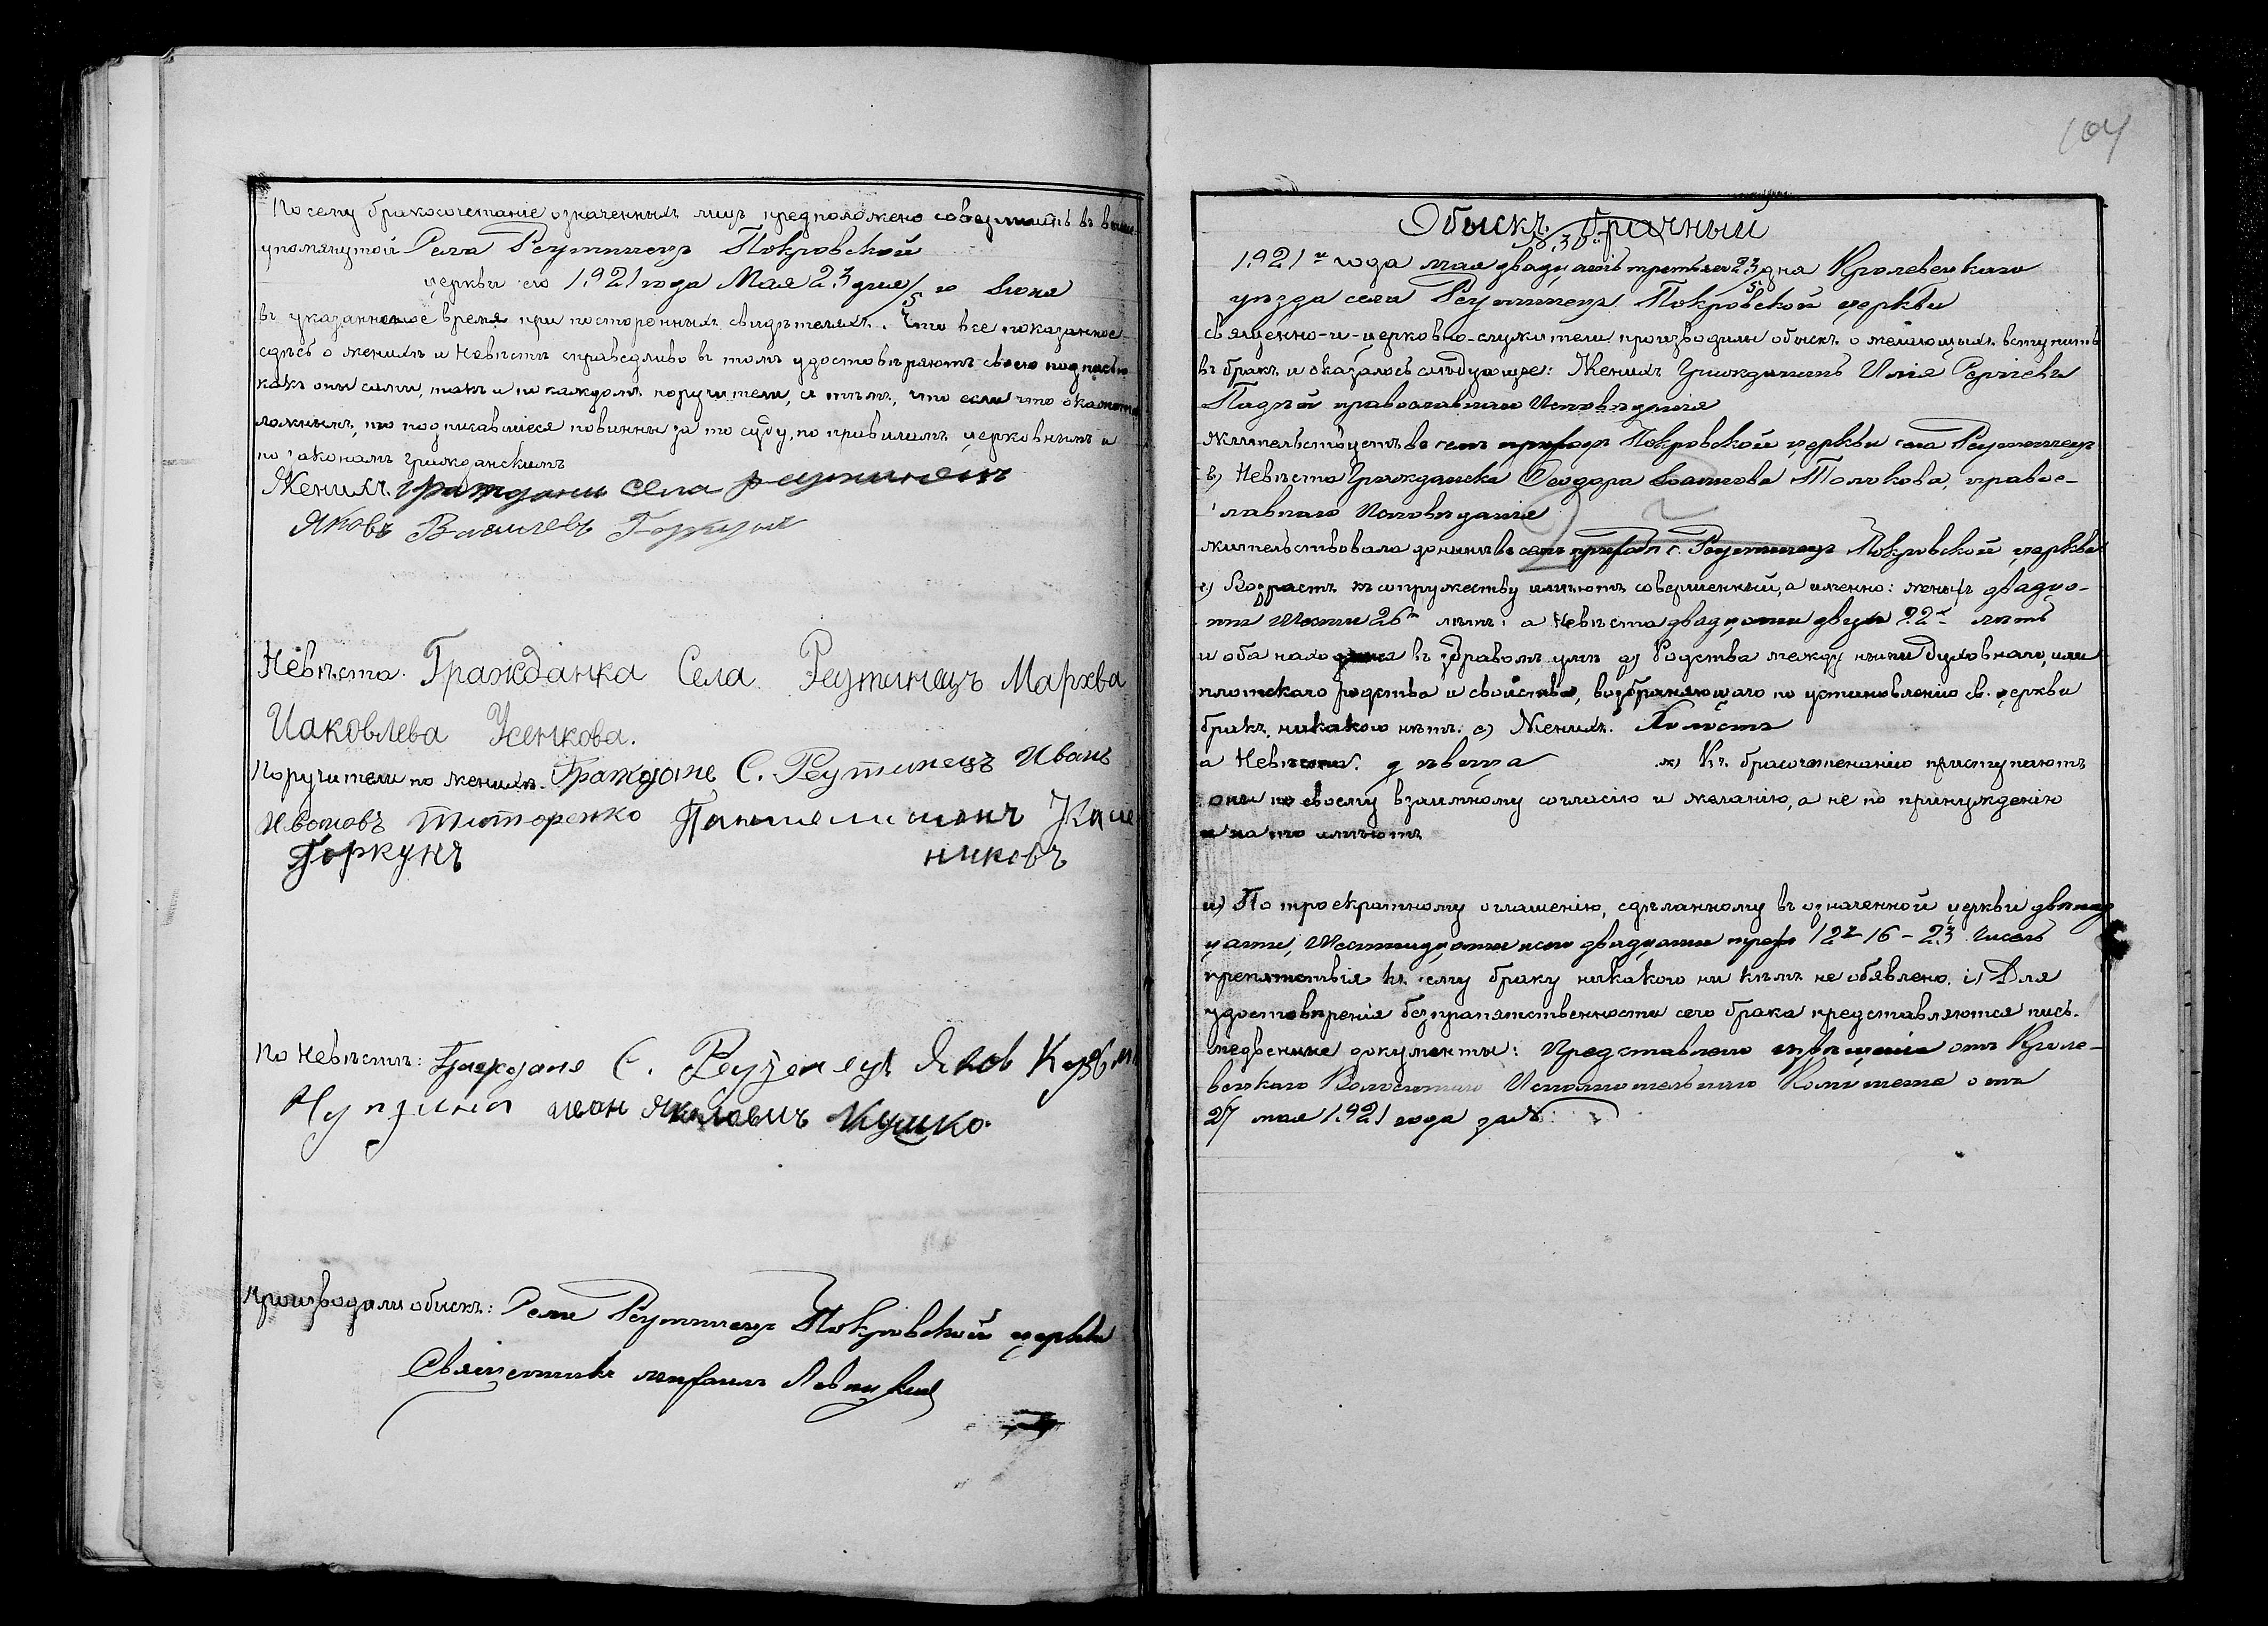 По сему бракосочетаніе означенныхъ лицъ предположено совершить въ выше-
упомянутой Села Реутинецъ Покровской
церкви его 1921 года Мая 23 дня/5 го Іюня
въ указанное время при постороннихъ свидѣтеляхъ. Что все показанное
сдѣсь о женихѣ и Невѣстѣ справедливо въ томъ удостовѣряютъ своею подписью
какъ они сами, такъ и по каждомъ поручители, съ тѣмъ, что если что окажется
ложнымъ, то подписавшіеся повинны за то суду, по правиламъ церковнымъ и
по законамъ гражданскимъ
Женихъ. граждани села реутинецъ
Яковъ Василевъ
Невѣста. Гражданка Села Реутинецъ Марѳва
Иаковлева Усенкова.
Поручители по женихѣ. Граждане С. Реутинецъ Иванъ
Ивановъ Титоренко
Горкунъ никовъ
По Невѣстѣ: Граждане С. Яков
иван Яковловичъ Кушко.
Производили обыскъ: Села Реутинецъ Покровской церкви
Священникъ Михаилъ Левицкій
104
Обыскъ брачный
№ 30й
1921го года мая двадцать третьяго 23/5 дня Кролевецкаго
уѣзда села Реутинецъ Покровской церкви
священно-и-церковно-служители производили обыскъ о желающихъ вступить
въ бракъ и оказалось слѣдующее: Женихъ Гражданинъ Илія Сергіевъ
православнаго Исповѣданія
жительствуетъ въ приходѣ Покровской церкви села Реутинецъ
в) Невѣста Гражданска Ѳеодора Толокова, правос-
лавнаго Исповѣданія
жительствовала донынѣ въ приходѣ с. Реутинецъ Покровской церкви
г) Возрастъ къ супружеству имѣютъ совершенный, а именно: женихъ двадца-
ти шести 26ти лѣтъ: а Невѣста двадцати двухъ 22х лѣтъ
и оба находятся въ здравомъ умѣ д) Родства между ними духовнаго, или
плотскаго родства и свойства, возбраняющаго по установленію св. церкви
бракъ, никакого нѣтъ. е) Женихъ. Холостъ
а Невѣста. дѣвица ж) Къ бракосочетанію приступаютъ
они по своему взаимному согласію и желанію, а не по принужденію
и на то имѣютъ
и) По троекратному оглашенію, сдѣланному въ означенной церкви двѣнад-
цати, Шестнадцати и двадцати трехъ 12го-16-23 чиселъ
препятствія къ сему браку никакого ни кѣмъ не объявлено. і) Для
удостовѣренія безпрапятственности сего брака представляются пись-
медвенные документы: Представлено извѣщеніе отъ Кроле-
вецкаго Волостнаго Исполнительнаго Комитета отъ
27 мая 1921 года за №